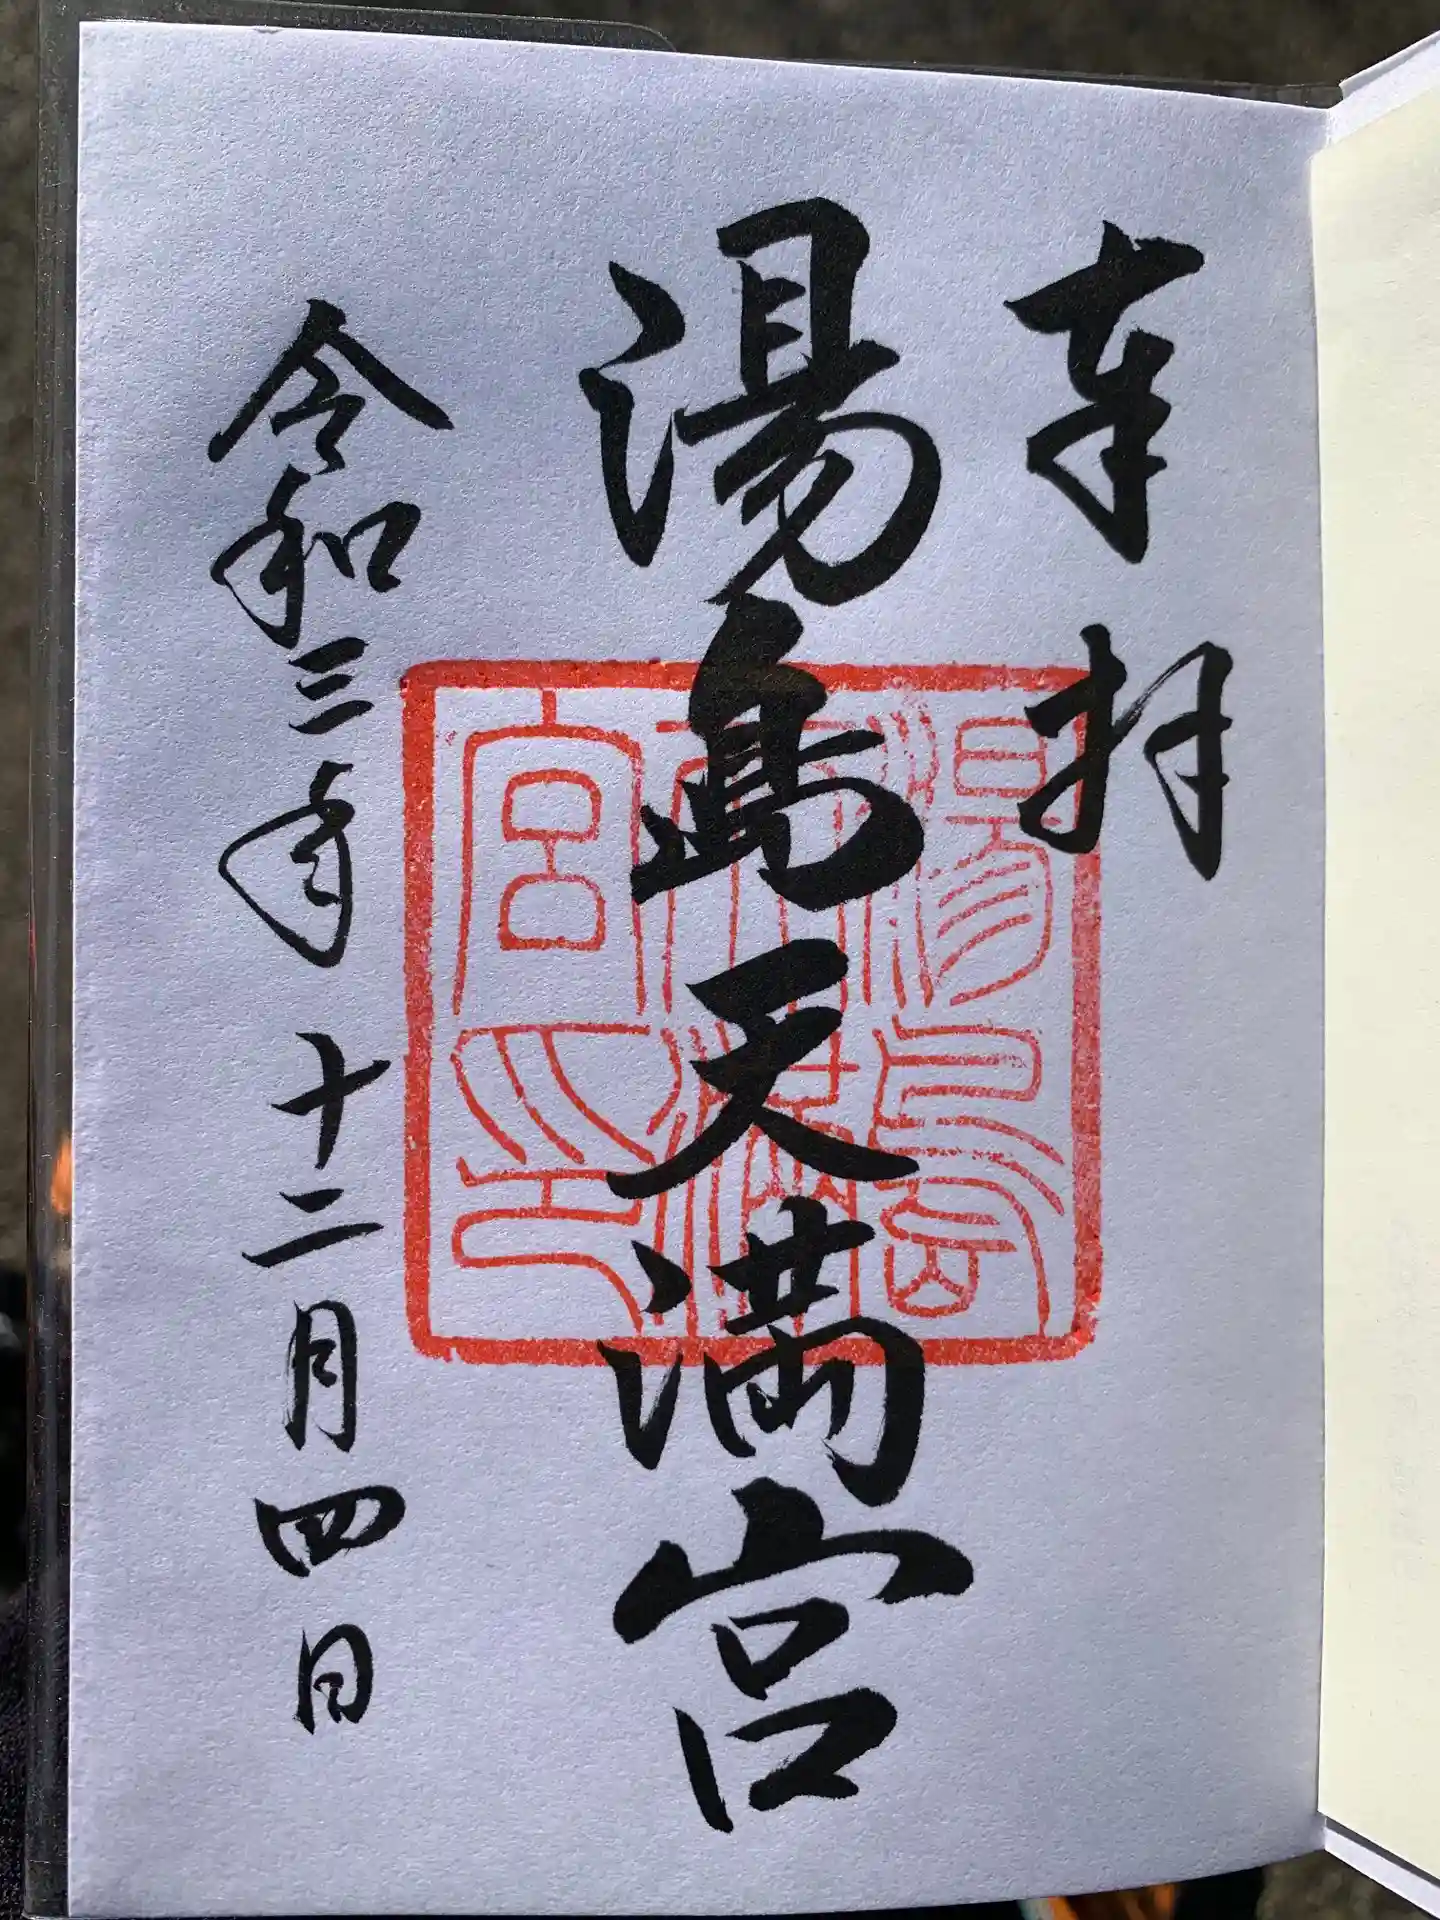 奉拝
湯島天満宮
令和三年十二月四日
湯島天満宮之印